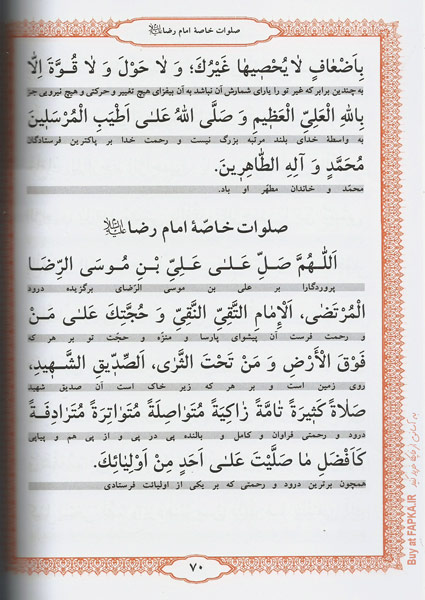 صلوات خاصة امام رضا
بِاَضْعٰافٍ لٰا يُحْصِيهٰا غَيْرُكَ؛ وَ لٰا حَوْلَ وَ لٰا قُوَّةَ اِلّٰا
به چندین برابر که غیر تو را یارای شمارش آن نباشد به آن بیفزای هیچ تغییر و حرکتی و هیچ نیرویی جز
بِاللهِ الْعَلِيِّ الْعَظِيمِ وَ صَلَّى اللهُ عَلىٰ اَطْيَبِ الْمُرْسَلِينَ
به واسطهٔ خدای بلند مرتبه بزرگ نیست و رحمت خدا بر پاکترین فرستادگان
مُحَمَّدٍ وَ آلِهِ الطّٰاهِرِينَ.
محمّد و خاندان مطهّر او باد.
صلوات خاصّهٔ امام رضا
اَللّٰهُمَّ صَلِّ عَلىٰ عَلِيِّ بْنِ مُوسَى الرِّضَا
پروردگارا بر علی بن موسی الرّضای برگزیده درود
الْمُرْتَضىٰ، اَلْإِمٰامِ التَّقِيِّ النَّقِيِّ وَ حُجَّتِكَ عَلىٰ مَنْ
و رحمت فرست آن پیشوای پارسا و منزّه و حجّت تو بر هر که
فَوْقَ الْأَرْضِ وَ مَنْ تَحْتَ الثَّرىٰ، اَلصِّدِّيقِ الشَّهِيدِ،
روی زمین است و بر هر که زیر خاک است آن صدیق شهید
صَلاٰةً كَثِيرَةً تٰامَّةً زٰاكِيَةً مُتَوٰاصِلَةً مُتَوٰاتِرَةً مُتَرٰادِفَةً
درود و رحمتی فراوان و کامل و بالنده پی در پی و از پی هم و پیاپی
كَاَفْضَلِ مٰا صَلَّيْتَ عَلىٰ اَحَدٍ مِنْ اَوْلِيٰائِكَ.
همچون برترین درود و رحمتی که بر یکی از اولیائت فرستادی
۷۰
Buy at FAPKA.IR